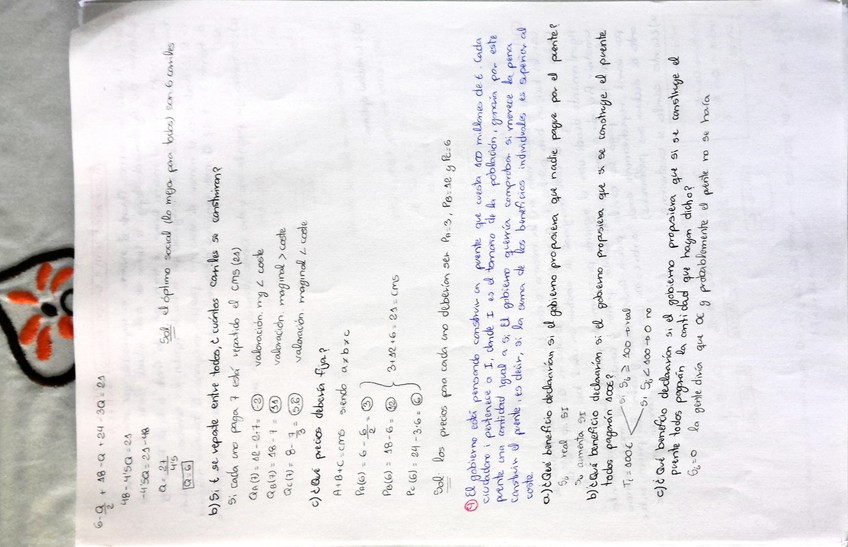 6 - Q/2 + 18 - Q + 24 - 3Q = 21
48 - 4'5Q = 21
-4'5Q = 21 - 48
Q = 27/4'5
Q = 6
Sol el óptimo social (lo mejor para todos) son 6 carriles
b) Si t se reparte entre todos, ¿cuántos carriles se construirán?
Si cada uno paga 7 está repartido el CMS (21)
QA(7) = 12 - 2·7 = -2 valoración mg < coste
QB(7) = 18 - 7 = 11 valoración marginal > coste
QC(7) = 8 - 7/3 = 5,6 valoración marginal < coste
c) ¿Qué precios debería fijar?
A + B + C = CMS siendo a x b x c
PA(6) = 6 - 6/2 = 3
PB(6) = 18 - 6 = 12
PC(6) = 24 - 3·6 = 6
3 + 12 + 6 = 21 = CMS
Sol los precios para cada uno deberían ser PA = 3, PB = 12 y PC = 6
⑤ El gobierno está pensando construir un puente que cuesta 100 millones de €. Cada
ciudadano i pertenece a I, donde I es el tamaño de la población, ganaría por este
puente una cantidad igual a si. El gobierno querría comprobar si merece la pena
construir el puente, es decir, si la suma de los beneficios individuales es superior al
coste.
a) ¿Qué beneficio declararían si el gobierno propusiera que nadie pague por el puente?
real si
aumenta si
b) ¿Qué beneficio declararían si el gobierno propusiera que si se construye el puente
todos pagarán 100€?
Ti = 100€ si ≥ 100 → real
si < 100 → 0 no
c) ¿Qué beneficio declararían si el gobierno propusiera que si se construye el
puente todos pagarán la cantidad que hayan dicho?
= 0 la gente diría que 0€ y probablemente el puente no se haría